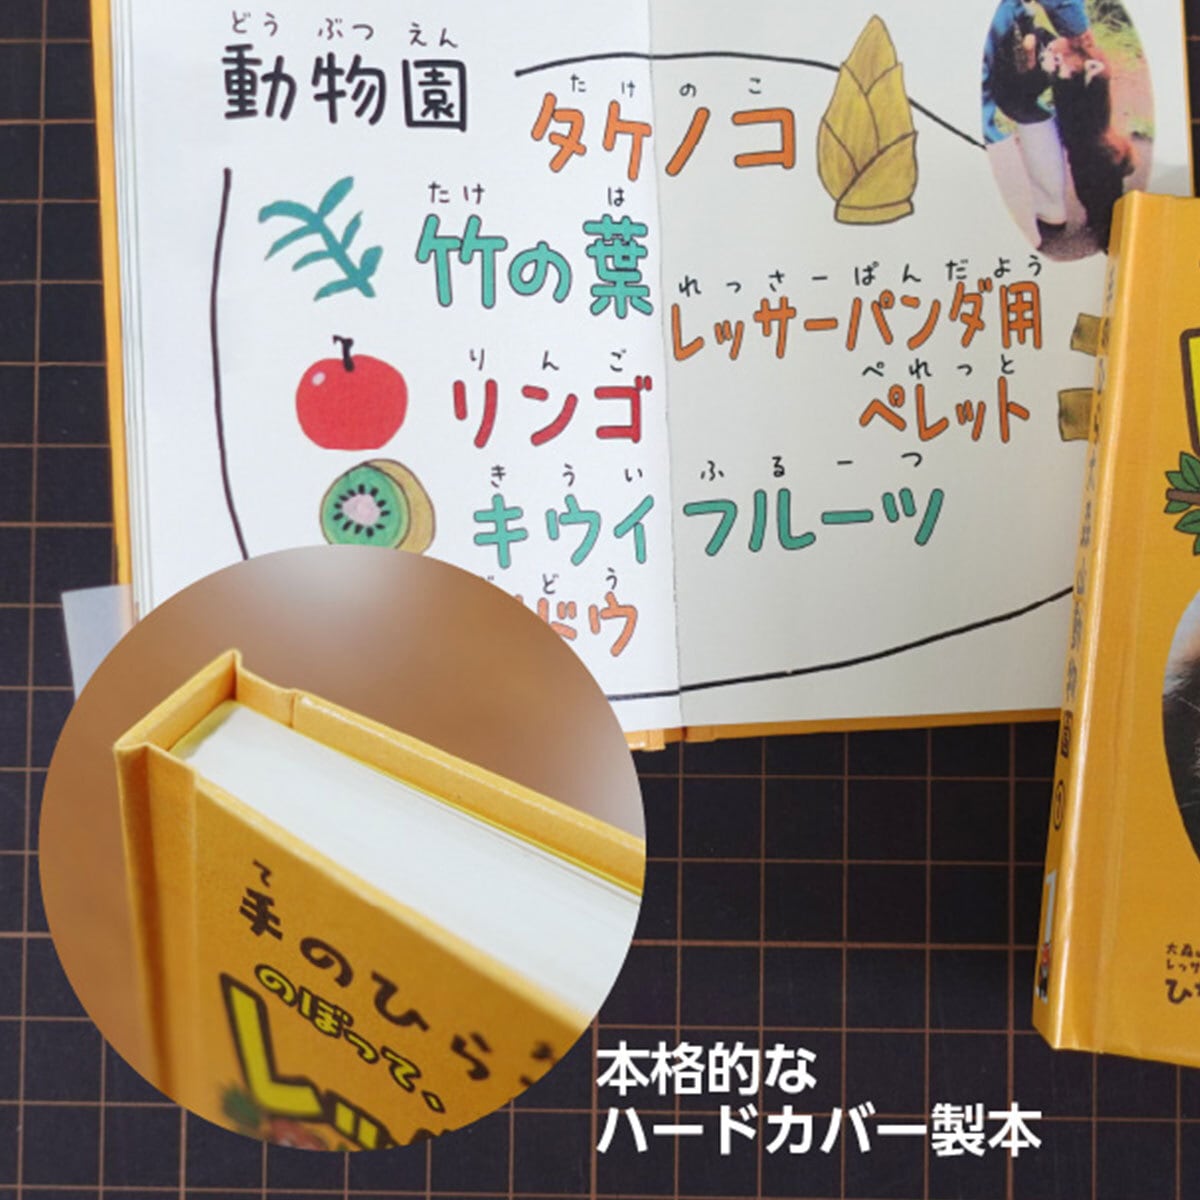 どうぶつえん
動物園
たけのこ
タケノコ
たけ は
竹の葉
れっさーぱんだよう
レッサーパンダ用
ぺれっと
ペレット
りんご
リンゴ
きういふるーつ
キウイフルーツ
どう
ドウ
て
手のひら
のぼって、
レッ
本格的な
ハードカバー製本